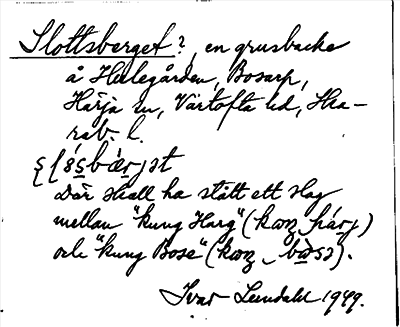 Slottsberget?, en grusbacke
å Hulegården, Bosarp,
Härja sn, Vartofta hd, Ska-
rab. l.
Där skall ha stått ett slag
mellan "kung Harg" (
och "kung Bose" (
Ivar Lundahl 1949.